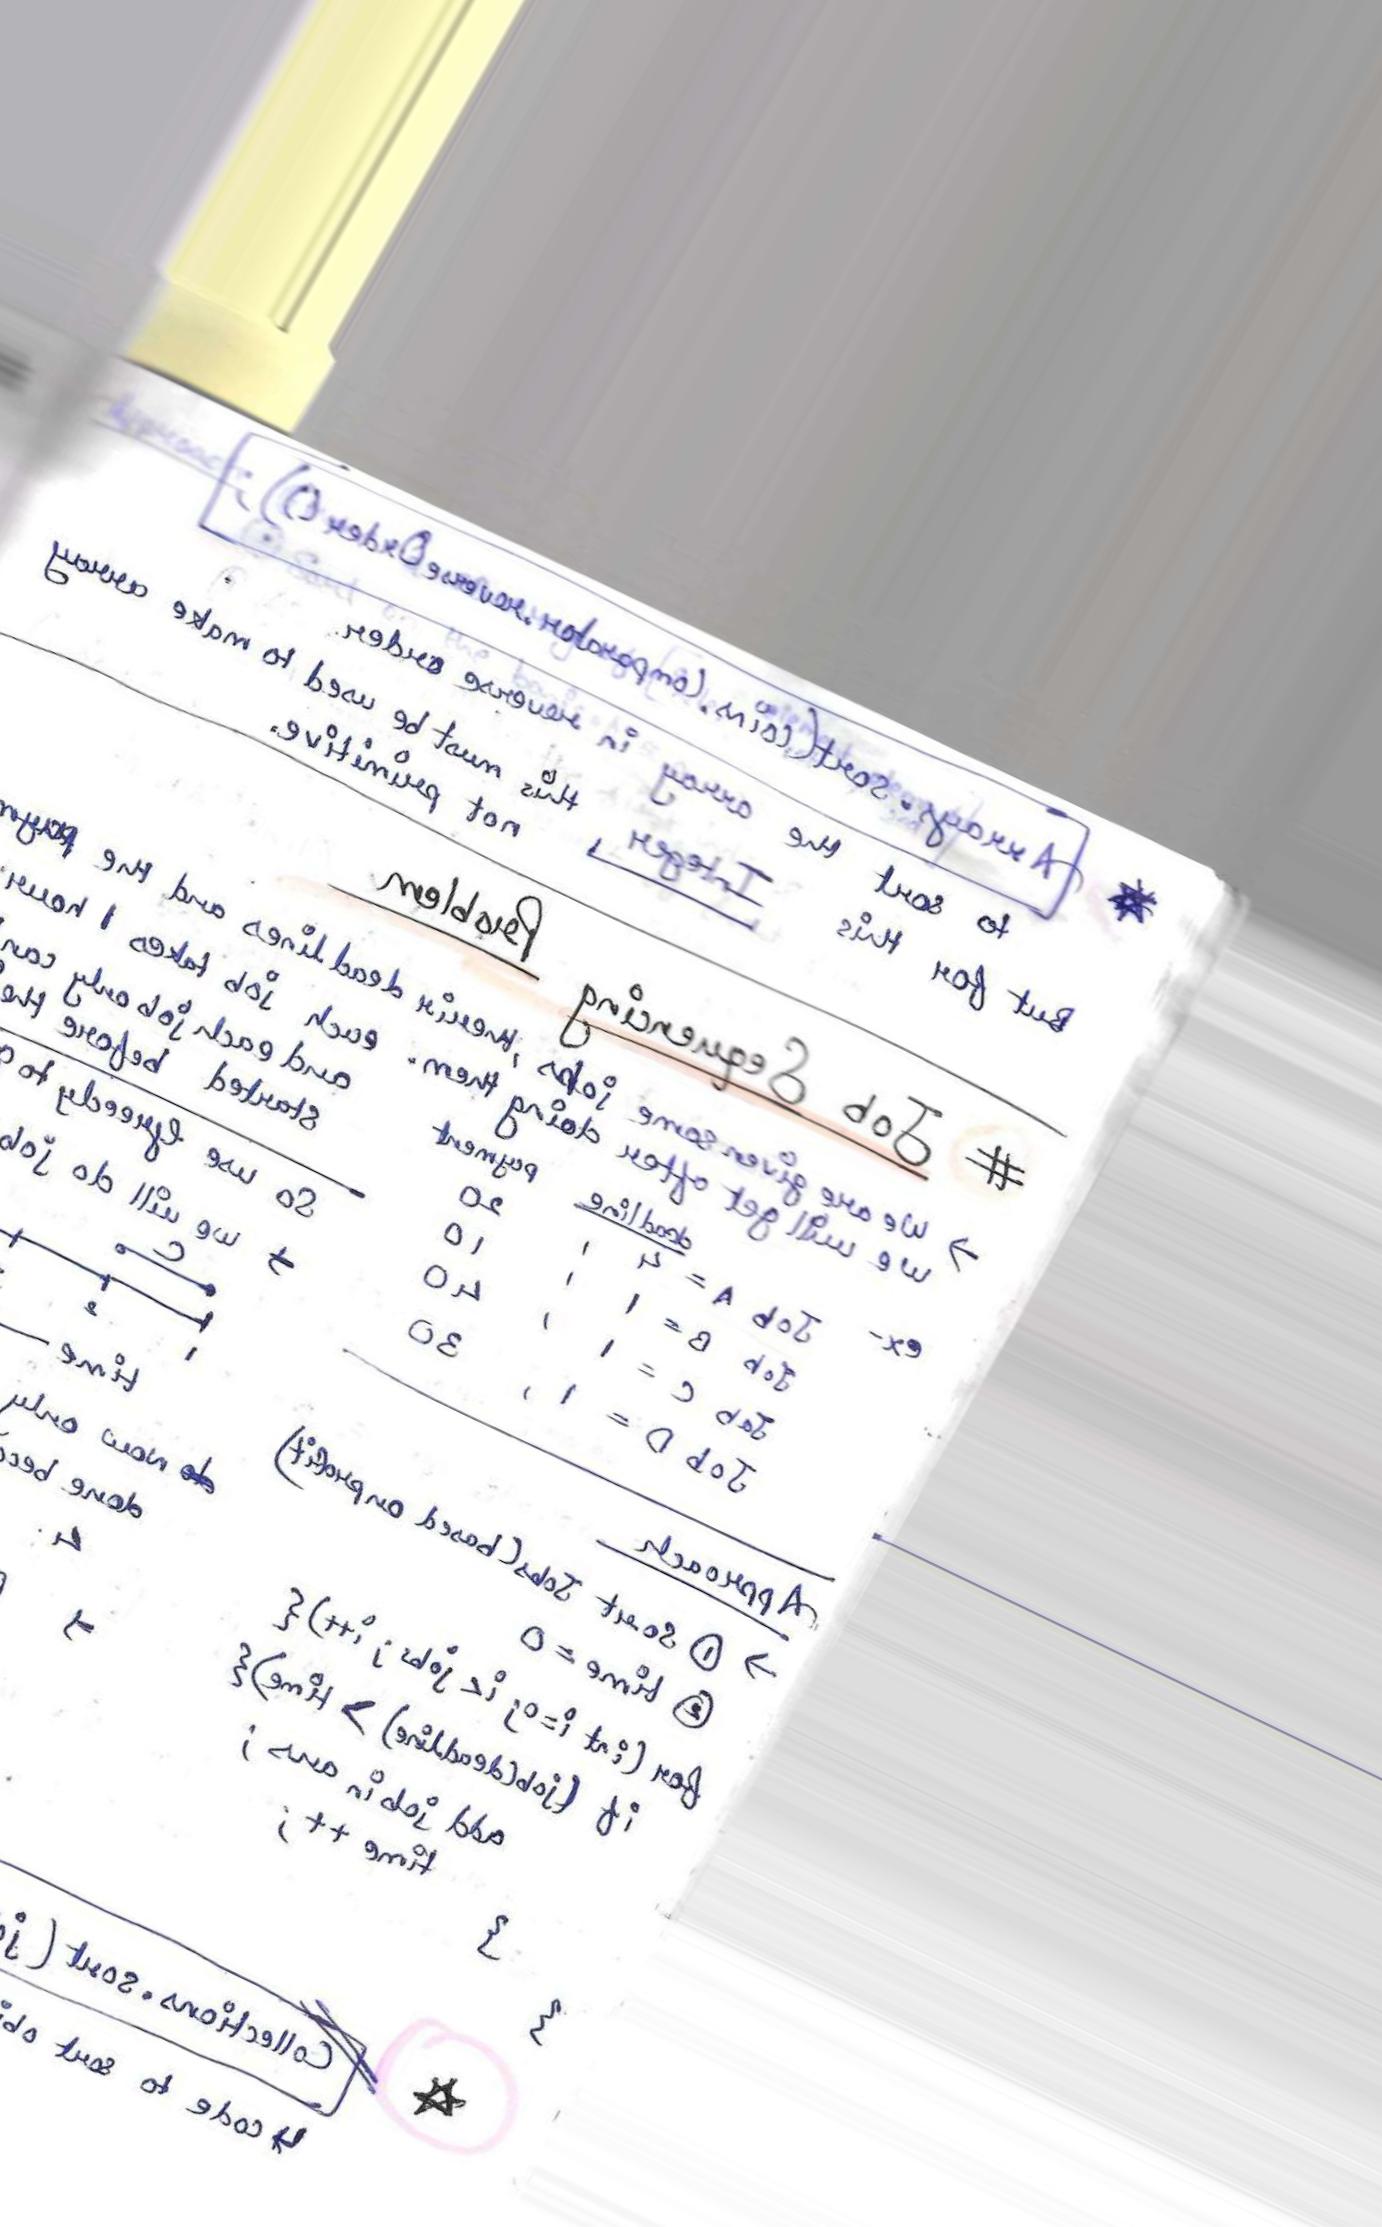 Arrays.sort(coins.Comparator.reverseOrder());
to sort the array in reverse order.
But for this Integer this must be used to make array
not primitive.
# Job Sequencing Problem
→ We are given some jobs, their deadlines and the
we will get after doing them. each job takes 1 hour
and each job only can
started before the
ex- deadline payment
Job A = 4 , 20
Job B = 1 , 10
Job C = 1 , 40
Job D = 1 , 30
So use greedy to
→ we will do job
C
1 2
time
to now only
done
4
Approach
→ ① Sort Jobs (based on profit)
② time = 0
for (int i=0; i< jobs; i++){
if (job(deadline) > time){
add job in ans ;
time ++ ;
}
}
Collections.sort(
↳ code to sort